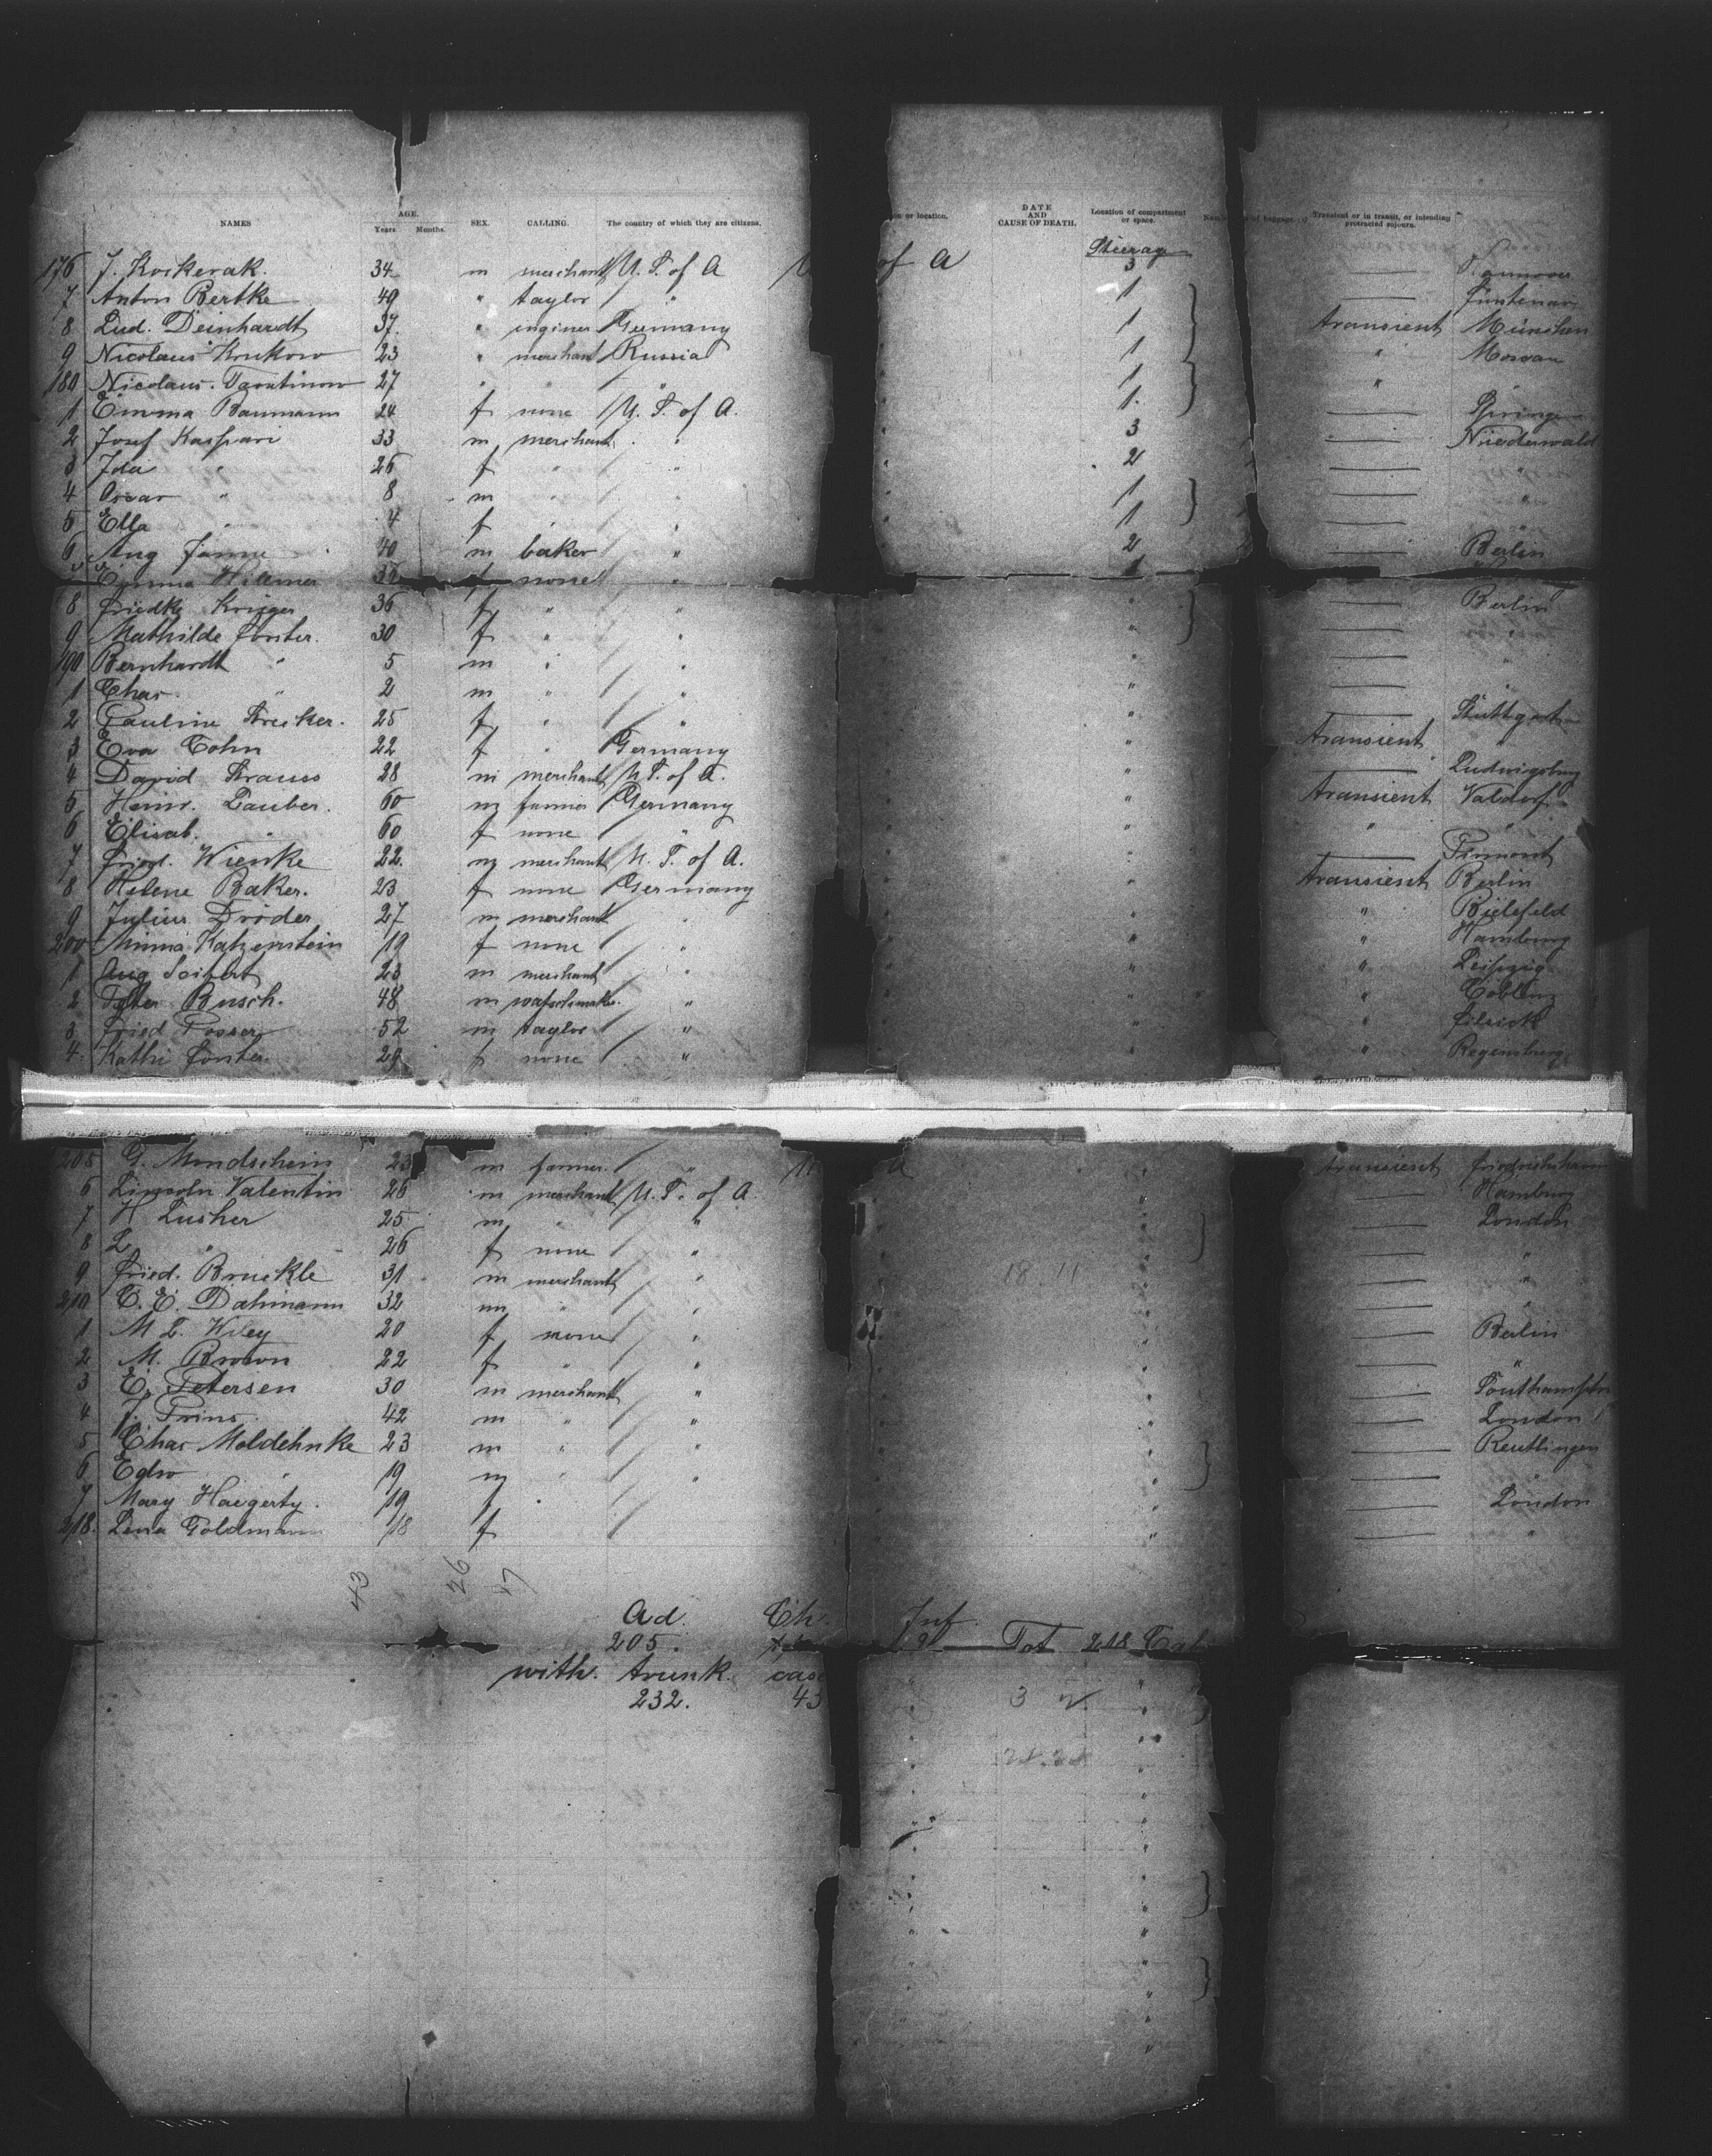 NAMES AGE. Years Months. SEX. CALLING. The country of which they are citizens. or location. DATE AND CAUSE OF DEATH. Location of compartment or space. Transient or in transit, or intending protracted sojourn.
176 J. Koskerak. 34 m merchant U. S. of A of A Steerag 3
7 Anton Bertke 49 " taylor " 1
8 Lud. Deinhardt 37. " inginer Germany 1 transient München
9 Nicolaus Krukow 23 " merchant Russia 1 " Moscau
180 Nicolaus 27 " " " 1 "
1 Emma Baumann 24 f none U. S. of A. 1. Springe
2 Josef Kaspari 33 m merchant " 3 Niederwald
3 Ida " 26 f " " 2 "
4 Oscar " 8 m " " 1 "
5 Ella " 4 f " " 1 "
6 Aug 40 m baker " 2 Berlin
7 Emma Hillmer f none " 1
8 Friedke Krüger 36 f " " " Berlin
9 Mathilde Förster. 30 f " " " "
190 Bernhardt " 5 m " " " "
1 Chas. " 2 m " " " "
2 Pauline 25 f " " " Stuttgart
3 Eva Cohn 22 f " Germany " transient "
4 David Strauss 28 m merchant U. S. of A. " Ludwigsburg
5 Heinr. Tauber. 60 m farmer Germany " transient Valdorf
6 Elisab. " 60 f none " " " "
7 Friedr. Wienke 22. m merchant U. S. of A. "
8 Helene Baker. 23 f none Germany " transient Berlin
9 Julius Dröder 27 m merchant " " " Bielefeld
200 Minna Katzenstein 19 f none " " " Hamburg
1 Aug Seifert 23 m merchant " " " Leipzig
2 Peter Busch. 48 m watschmaker. " " " Coblenz
3 Fried 52 m taylor " " "
4. Kathi Förster 29 f none " " " Regensburg
205 G. Mondschein 23 m farmer. " A " transient Friedrichshaven
6 Lincoln Valentin 26 m merchant U. S. of A. " Hamburg
7 H Lusher 25 m " " " London
8 L " 26 f none " " "
9 Fried. Bruckle 31 m merchant " " "
210 C. E. Dahmann 32 m " " " "
1 M L. Wiley 20 f none " " Berlin
2 M. Brown 22 f " " " "
3 E. Petersen 30 m merchant " " Southampton
4 J. Prins. 42 m " " " London
5 Chas Moldehnke 23 m " " " Reutlingen
6 Edw " 19 m " " " "
7 Mary Haegerty. 19 f " " London
218. Lena Goldmann 18 f " "
43 26 47
Ad. Ch. Inf.
205. 2 Tot 218 Cab
with. trunk. case
232. 43